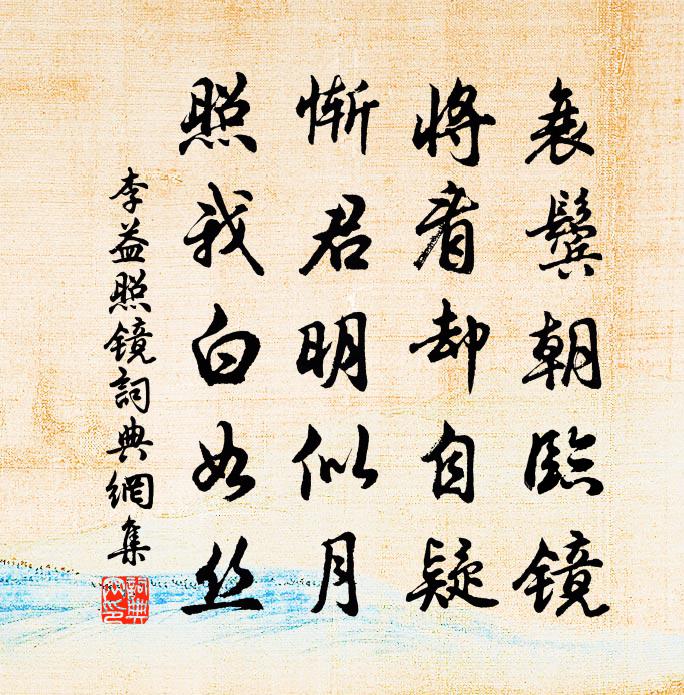 衰鬓朝臨镜
将看却自疑
惭君明似月
照我白如丝
李益照镜詞典網集
詞典